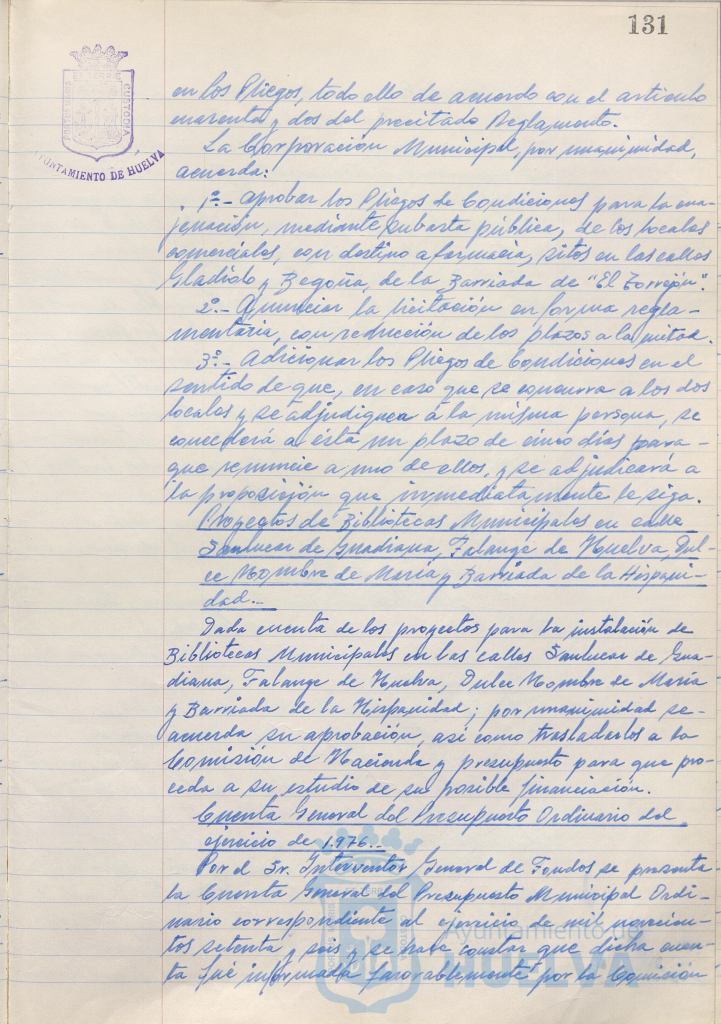 131
AYUNTAMIENTO DE HUELVA
en los Pliegos, todo ello de acuerdo con el articulo
cuarenta y dos del precitado Reglamento.
La Corporación Municipal, por unanimidad,
acuerda:
1º.- Aprobar los Pliegos de Condiciones para la ena-
jenación, mediante subasta pública, de los locales
comerciales, con destino a farmacia, sitos en las calles
Gladiolo y Begoña, de la Barriada de "El Torrejón".
2º.- Anunciar la licitación en forma regla-
mentaria, con reducción de los plazos a la mitad.
3º.- Adicionar los Pliegos de Condiciones en el
sentido de que, en caso que se concurra a los dos
locales y se adjudiquen a la misma persona, se
concederá a ésta un plazo de cinco días para-
que renuncie a uno de ellos, y se adjudicará a
la proposición que inmediatamente le siga.
Proyectos de Bibliotecas Municipales en calle
Sanlucar de Guadiana, Falange de Huelva, Dul-
ce Nombre de María y Barriada de la Hispani-
dad.-
Dada cuenta de los proyectos para la instalación de
Bibliotecas Municipales en las calles Sanlucar de Gua-
diana, Falange de Huelva, Dulce Nombre de María
y Barriada de la Hispanidad; por unanimidad se-
acuerda su aprobación, así como trasladarlos a la
Comisión de Hacienda y presupuesto para que pro-
ceda a su estudio de su posible financiación.
Cuenta General del Presupuesto Ordinario del
ejercicio de 1.976.-
Por el Sr. Interventor General de Fondos se presenta-
la Cuenta General del Presupuesto Municipal Ordi-
nario correspondiente al ejercicio de mil novecien-
tos setenta y seis y se hace constar que dicha cuen-
ta fué informada favorablemente por la Comisión
Ayuntamiento de
HUELVA